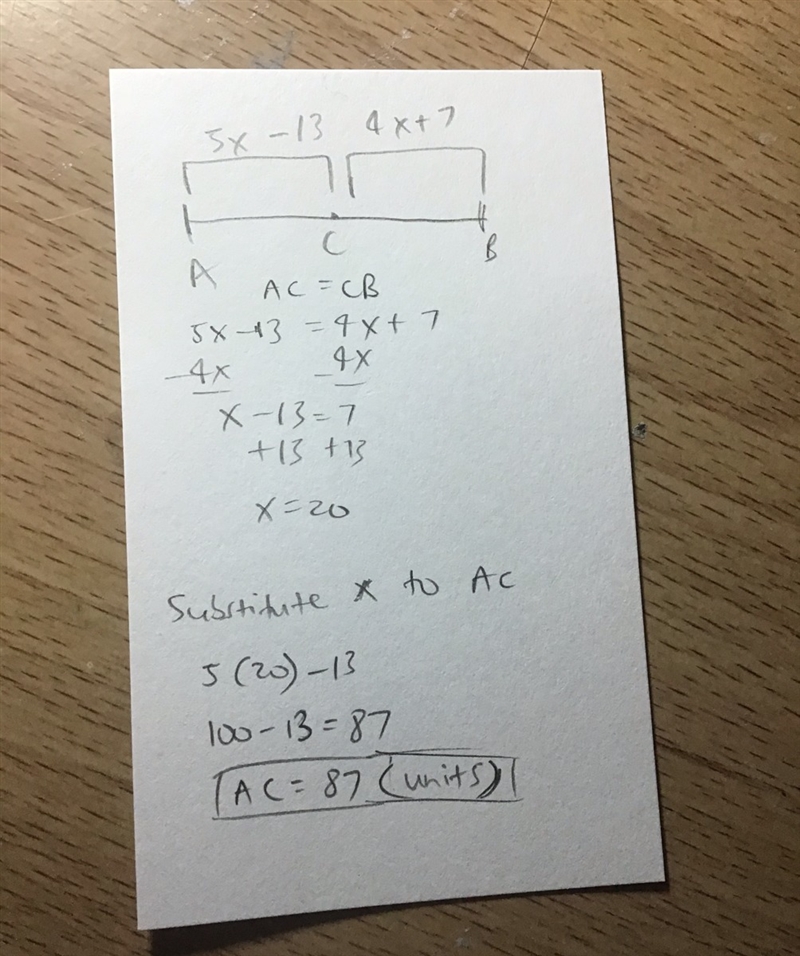 5x - 13 4x + 7
A C B
AC = CB
5x - 13 = 4x + 7
- 4x - 4x
x - 13 = 7
+ 13 + 13
x = 20
Substitute x to AC
5 (20) - 13
100 - 13 = 87
AC = 87 (units)